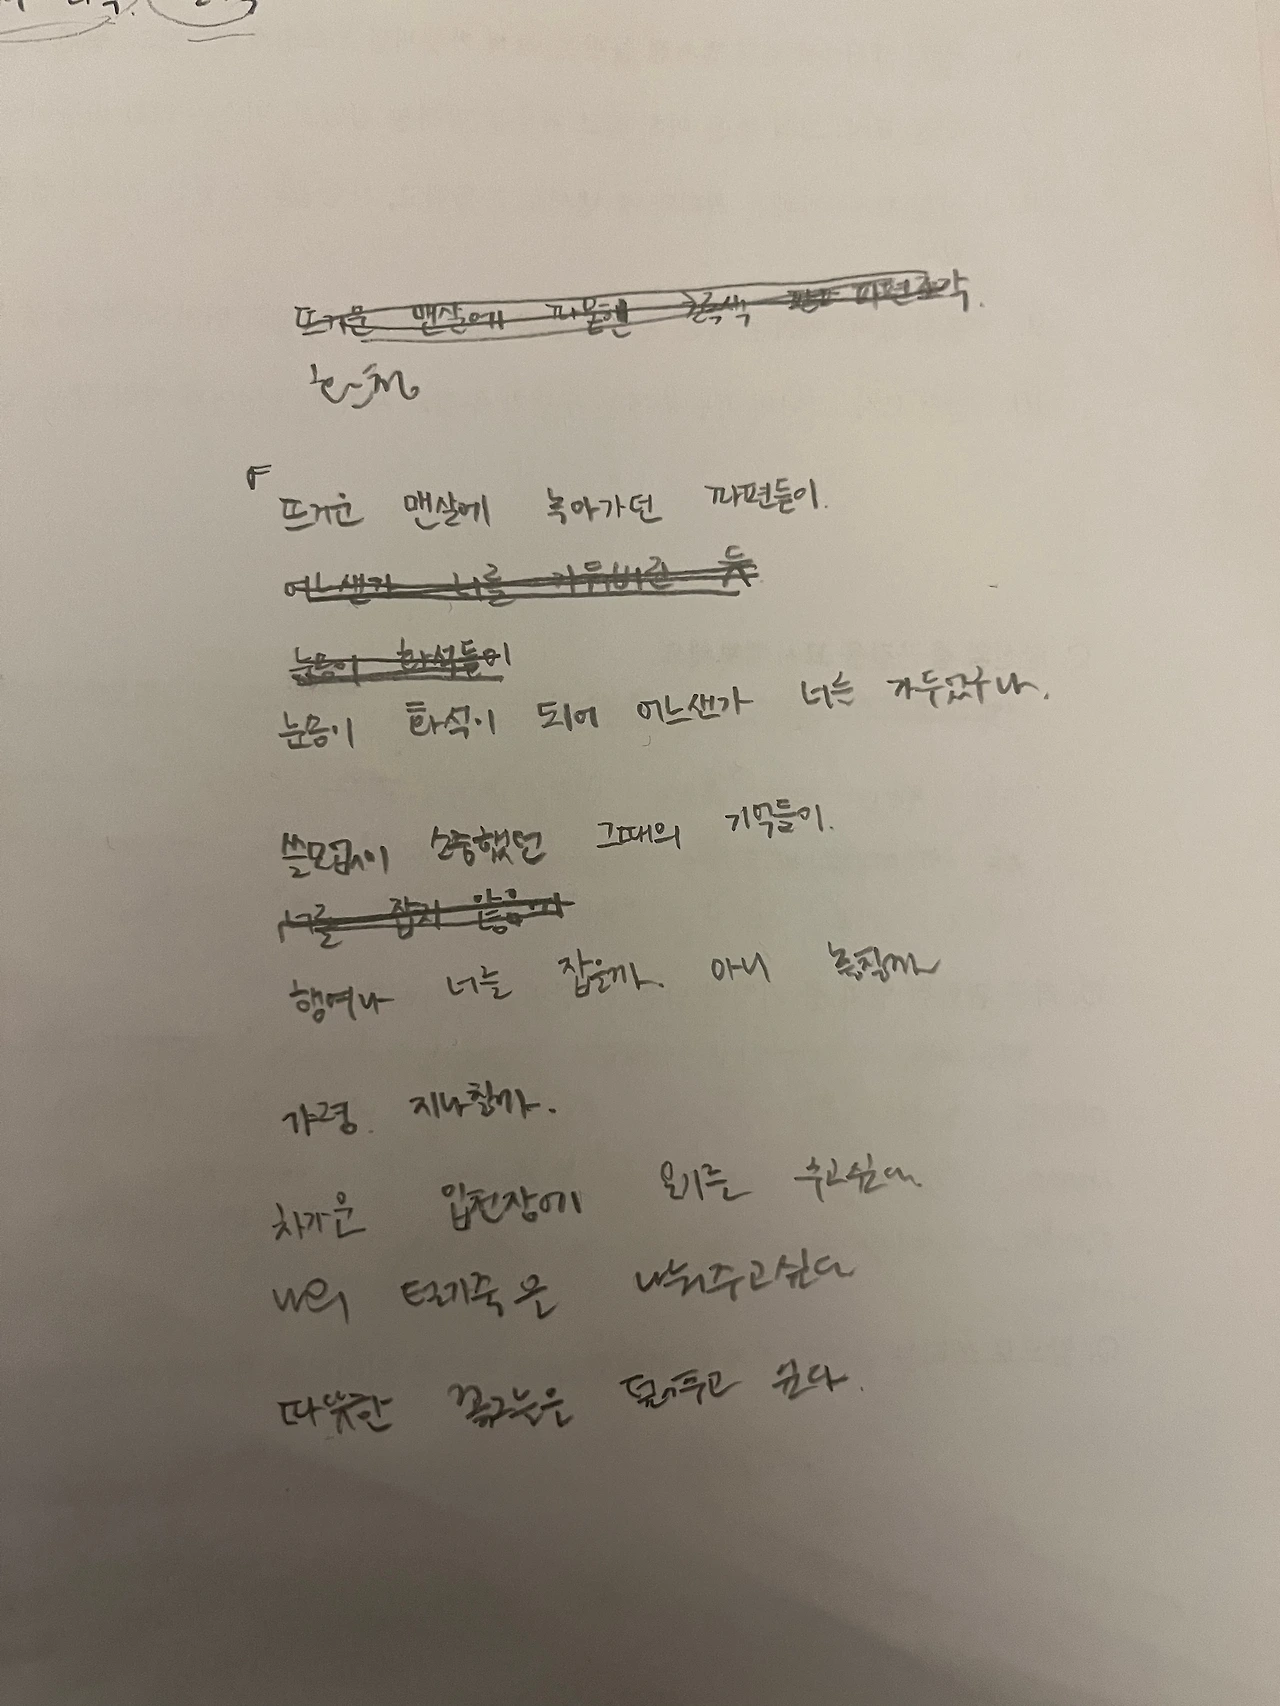 뜨거운 맨살에 파묻힌 초록색 파편조각.
뜨거운 맨살에 녹아가던 파편들이.
어느샌가 너를 가둬버린 듯
눈몽이 화석들이
눈몽이 화석이 되어 어느샌가 너를 가두었구나.
쓸모없이 소중했던 그때의 기억들이.
너를 잡지 않을까
행여나 너를 잡을까. 아니 놓칠까
가령. 지나칠까.
차가운 입천장에 온기를 주고싶다.
나의 털가죽을 나눠주고싶다
따뜻한 싶다.